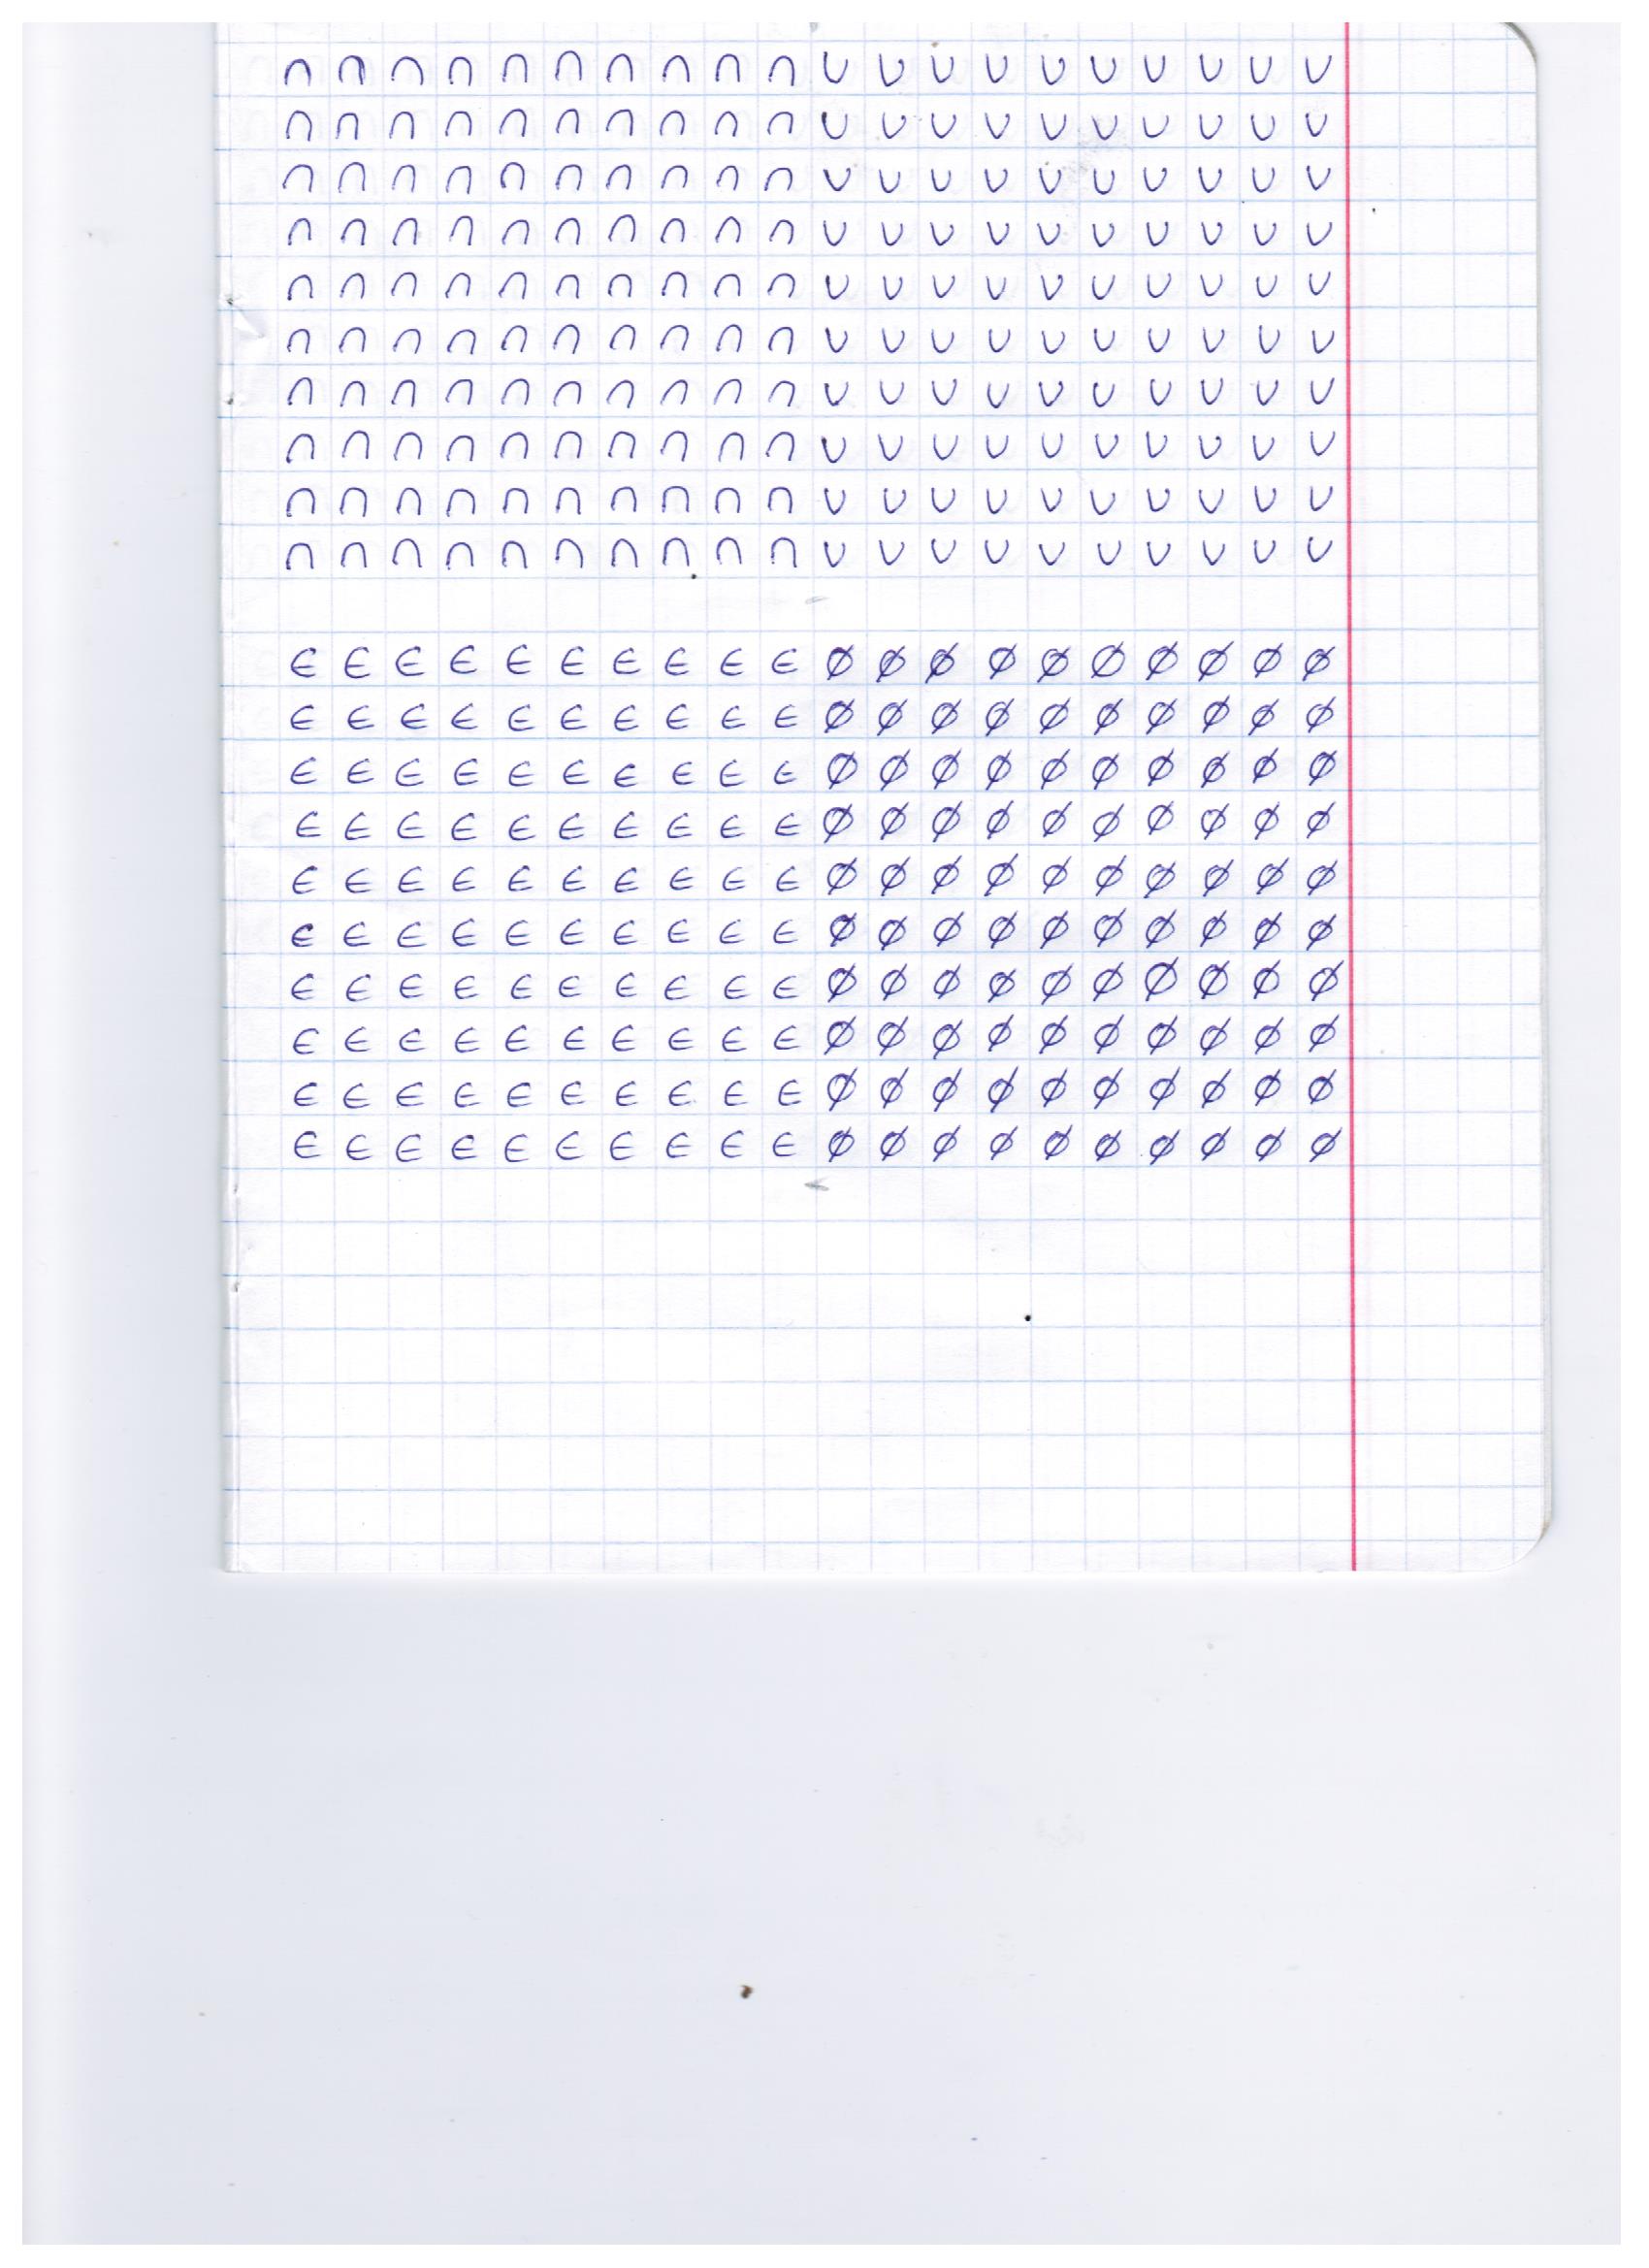 ∩ ∩ ∩ ∩ ∩ ∩ ∩ ∩ ∩ ∩ ∪ ∪ ∪ ∪ ∪ ∪ ∪ ∪ ∪ ∪
∩ ∩ ∩ ∩ ∩ ∩ ∩ ∩ ∩ ∩ ∪ ∪ ∪ ∪ ∪ ∪ ∪ ∪ ∪ ∪
∩ ∩ ∩ ∩ ∩ ∩ ∩ ∩ ∩ ∩ ∪ ∪ ∪ ∪ ∪ ∪ ∪ ∪ ∪ ∪
∩ ∩ ∩ ∩ ∩ ∩ ∩ ∩ ∩ ∩ ∪ ∪ ∪ ∪ ∪ ∪ ∪ ∪ ∪ ∪
∩ ∩ ∩ ∩ ∩ ∩ ∩ ∩ ∩ ∩ ∪ ∪ ∪ ∪ ∪ ∪ ∪ ∪ ∪ ∪
∩ ∩ ∩ ∩ ∩ ∩ ∩ ∩ ∩ ∩ ∪ ∪ ∪ ∪ ∪ ∪ ∪ ∪ ∪ ∪
∩ ∩ ∩ ∩ ∩ ∩ ∩ ∩ ∩ ∩ ∪ ∪ ∪ ∪ ∪ ∪ ∪ ∪ ∪ ∪
∩ ∩ ∩ ∩ ∩ ∩ ∩ ∩ ∩ ∩ ∪ ∪ ∪ ∪ ∪ ∪ ∪ ∪ ∪ ∪
∩ ∩ ∩ ∩ ∩ ∩ ∩ ∩ ∩ ∩ ∪ ∪ ∪ ∪ ∪ ∪ ∪ ∪ ∪ ∪
∩ ∩ ∩ ∩ ∩ ∩ ∩ ∩ ∩ ∩ ∪ ∪ ∪ ∪ ∪ ∪ ∪ ∪ ∪ ∪
∈ ∈ ∈ ∈ ∈ ∈ ∈ ∈ ∈ ∈ ∅ ∅ ∅ ∅ ∅ ∅ ∅ ∅ ∅ ∅
∈ ∈ ∈ ∈ ∈ ∈ ∈ ∈ ∈ ∈ ∅ ∅ ∅ ∅ ∅ ∅ ∅ ∅ ∅ ∅
∈ ∈ ∈ ∈ ∈ ∈ ∈ ∈ ∈ ∈ ∅ ∅ ∅ ∅ ∅ ∅ ∅ ∅ ∅ ∅
∈ ∈ ∈ ∈ ∈ ∈ ∈ ∈ ∈ ∈ ∅ ∅ ∅ ∅ ∅ ∅ ∅ ∅ ∅ ∅
∈ ∈ ∈ ∈ ∈ ∈ ∈ ∈ ∈ ∈ ∅ ∅ ∅ ∅ ∅ ∅ ∅ ∅ ∅ ∅
∈ ∈ ∈ ∈ ∈ ∈ ∈ ∈ ∈ ∈ ∅ ∅ ∅ ∅ ∅ ∅ ∅ ∅ ∅ ∅
∈ ∈ ∈ ∈ ∈ ∈ ∈ ∈ ∈ ∈ ∅ ∅ ∅ ∅ ∅ ∅ ∅ ∅ ∅ ∅
∈ ∈ ∈ ∈ ∈ ∈ ∈ ∈ ∈ ∈ ∅ ∅ ∅ ∅ ∅ ∅ ∅ ∅ ∅ ∅
∈ ∈ ∈ ∈ ∈ ∈ ∈ ∈ ∈ ∈ ∅ ∅ ∅ ∅ ∅ ∅ ∅ ∅ ∅ ∅
∈ ∈ ∈ ∈ ∈ ∈ ∈ ∈ ∈ ∈ ∅ ∅ ∅ ∅ ∅ ∅ ∅ ∅ ∅ ∅